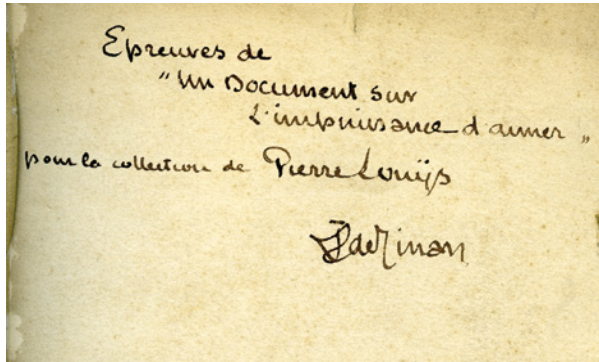 Epreuves de
"Un Document sur
L'impuissance d'aimer"
pour la collection de Pierre Louÿs
JdeTinan